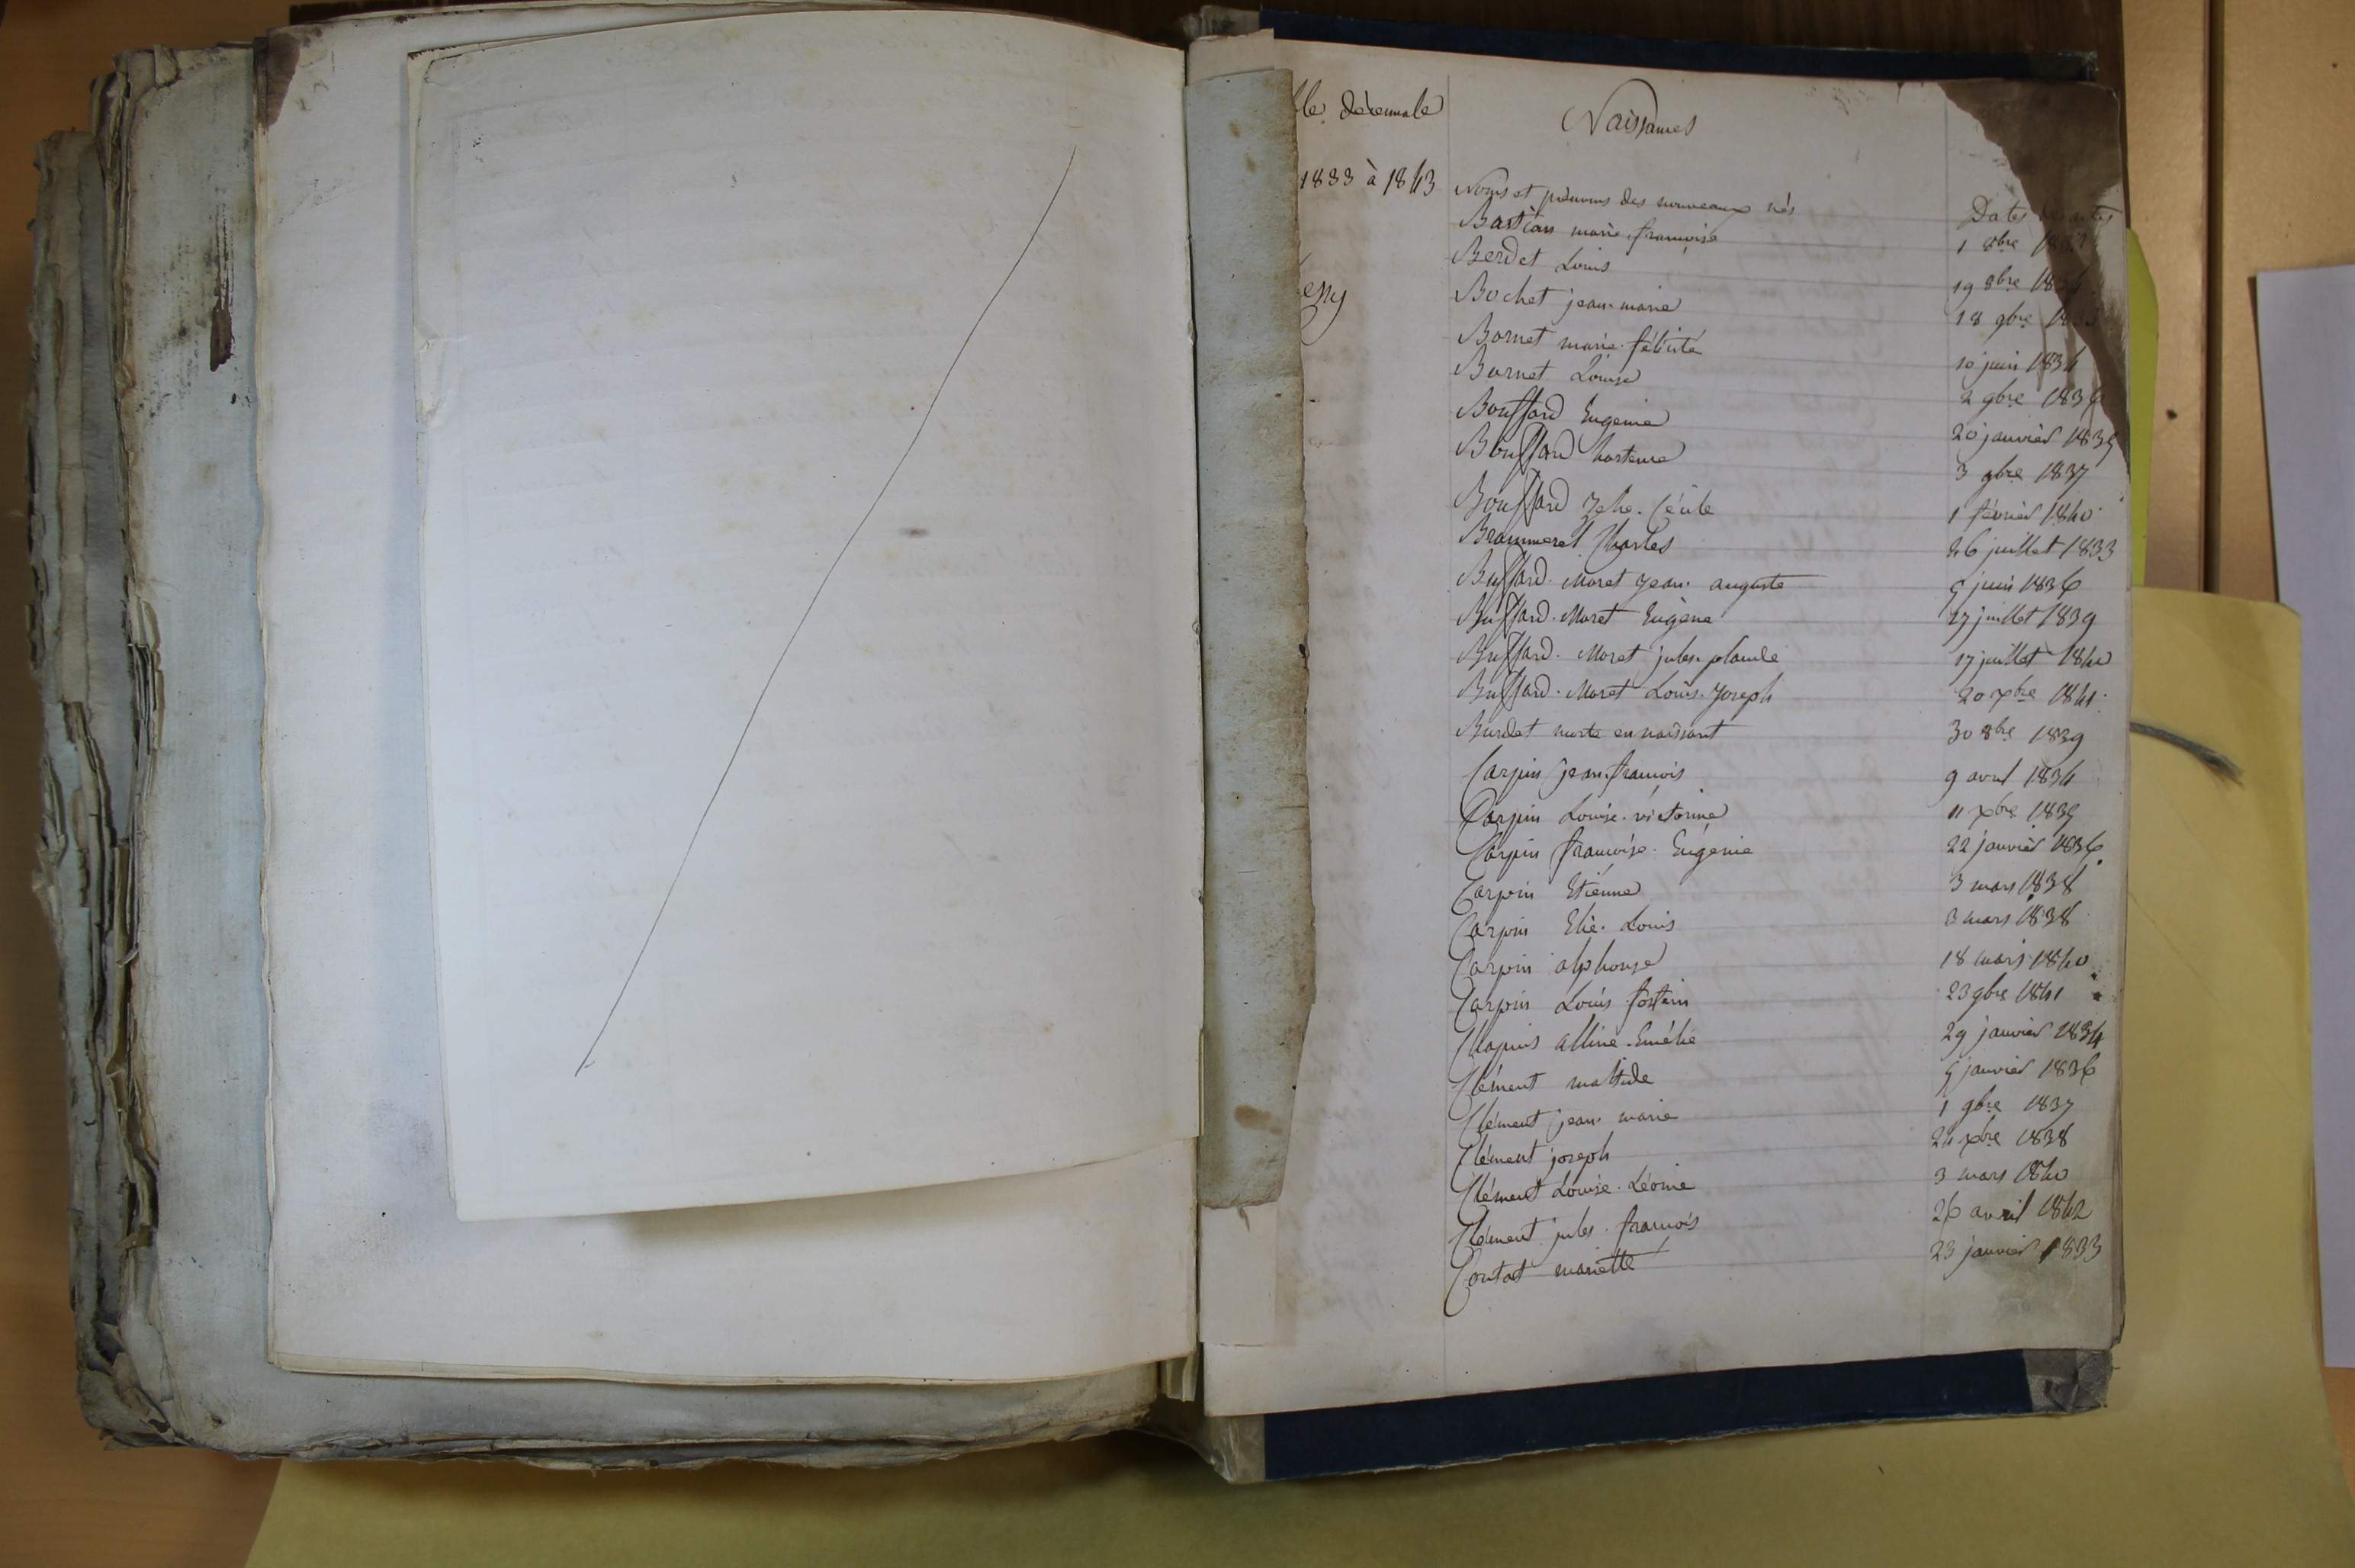 décennale
1833 à 1843
Naissances
Noms et prénoms des nouveaux nés Dates des actes
Bastian marie françoise 1 8bre
Berdet Louis 19 8bre
Bochet jean marie 18 9bre
Bornet marie félicité 10 juin 1834
Bornet Louise 2 9bre 1836
Bouffard Eugénie 20 janvier 1835
Bouffard hortense 3 9bre 1837
Bouffard Cécile 1 février 1840
Brammeret Charles 26 juillet 1833
Buffard-Moret Jean auguste 5 juin 1836
Buffard-Moret Eugène 27 juillet 1839
Buffard-Moret jules 17 juillet 1840
Buffard-Moret Louis Joseph 20 xbre 1841
Burdet morte en naissant 30 8bre 1839
Carpin jean françois 9 avril 1834
Carpin Louise victorine 11 xbre 1835
Carpin françoise Eugénie 22 janvier 1836
Carpin Etienne 3 mars 1838
Carpin Elie Louis 3 mars 1838
Carpin alphonse 18 mars 1840
Carpin Louis 23 9bre 1841
Chapuis Emélie 29 janvier 1834
Clément 5 janvier 1836
Clément jean marie 1 9bre 1837
Clément joseph 24 xbre 1838
Clément Louise Léonie 3 mars 1840
Clément jules françois 26 avril 1842
Contat mariette 23 janvier 1833